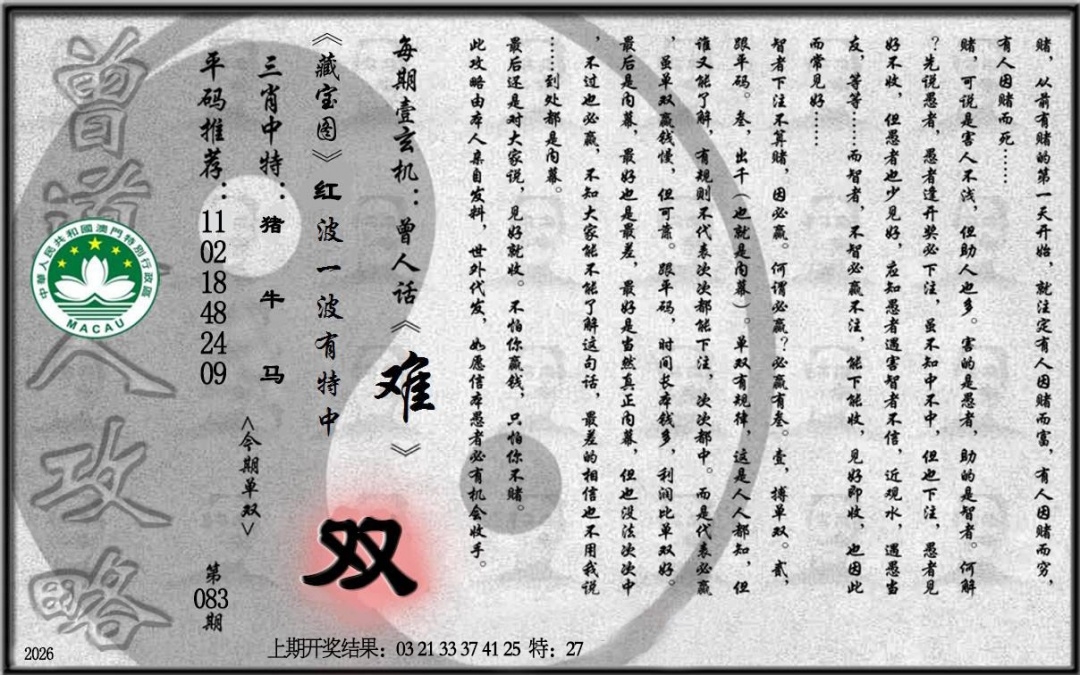 赌，从前有赌的第一天开始，就注定有人因赌而富，有人因赌而穷，
有人因赌而死……
赌，可说是害人不浅，但助人也多。害的是愚者，助的是智者。何解
？先说愚者，愚者逢开奖必下注，虽不知中不中，但也下注，愚者见
好不收，但愚者也少见好，应知愚者遇害智者不信，近观水，遇愚当
友，等等……而智者，不智必赢不注，能下能收，见好即收，也因此
而常见好……
智者下注不算赌，因必赢。何谓必赢？必赢有叁。壹，搏单双。贰，
跟平码。叁，出千（也就是内幕）。单双有规律，这是人人都知，但
谁又能了解，有规则不代表次次都能下注，次次都中。而是代表必赢
，虽单双赢钱慢，但可靠。跟平码，时间长本钱多，利润比单双好。
最后是内幕，最好也是最差，最好是当然真正内幕，但也没法次次中
，不过也必赢，不知大家能不能了解这句话，最差的相信也不用我说
……到处都是内幕。
最后还是对大家说，见好就收。不怕你赢钱，只怕你不赌。
此攻略由本人亲自发料，世外代发，如愿信本愚者必有机会收手。
每期壹玄机：曾人话《难》
《藏宝图》红波一波有特中
双
三肖中特：猪牛马
<今期单双>
平码推荐：11 02 18 48 24 09
第083期
曾道人攻略
中華人民共和國澳門特別行政區
MACAU
2026
上期开奖结果：03 21 33 37 41 25 特：27